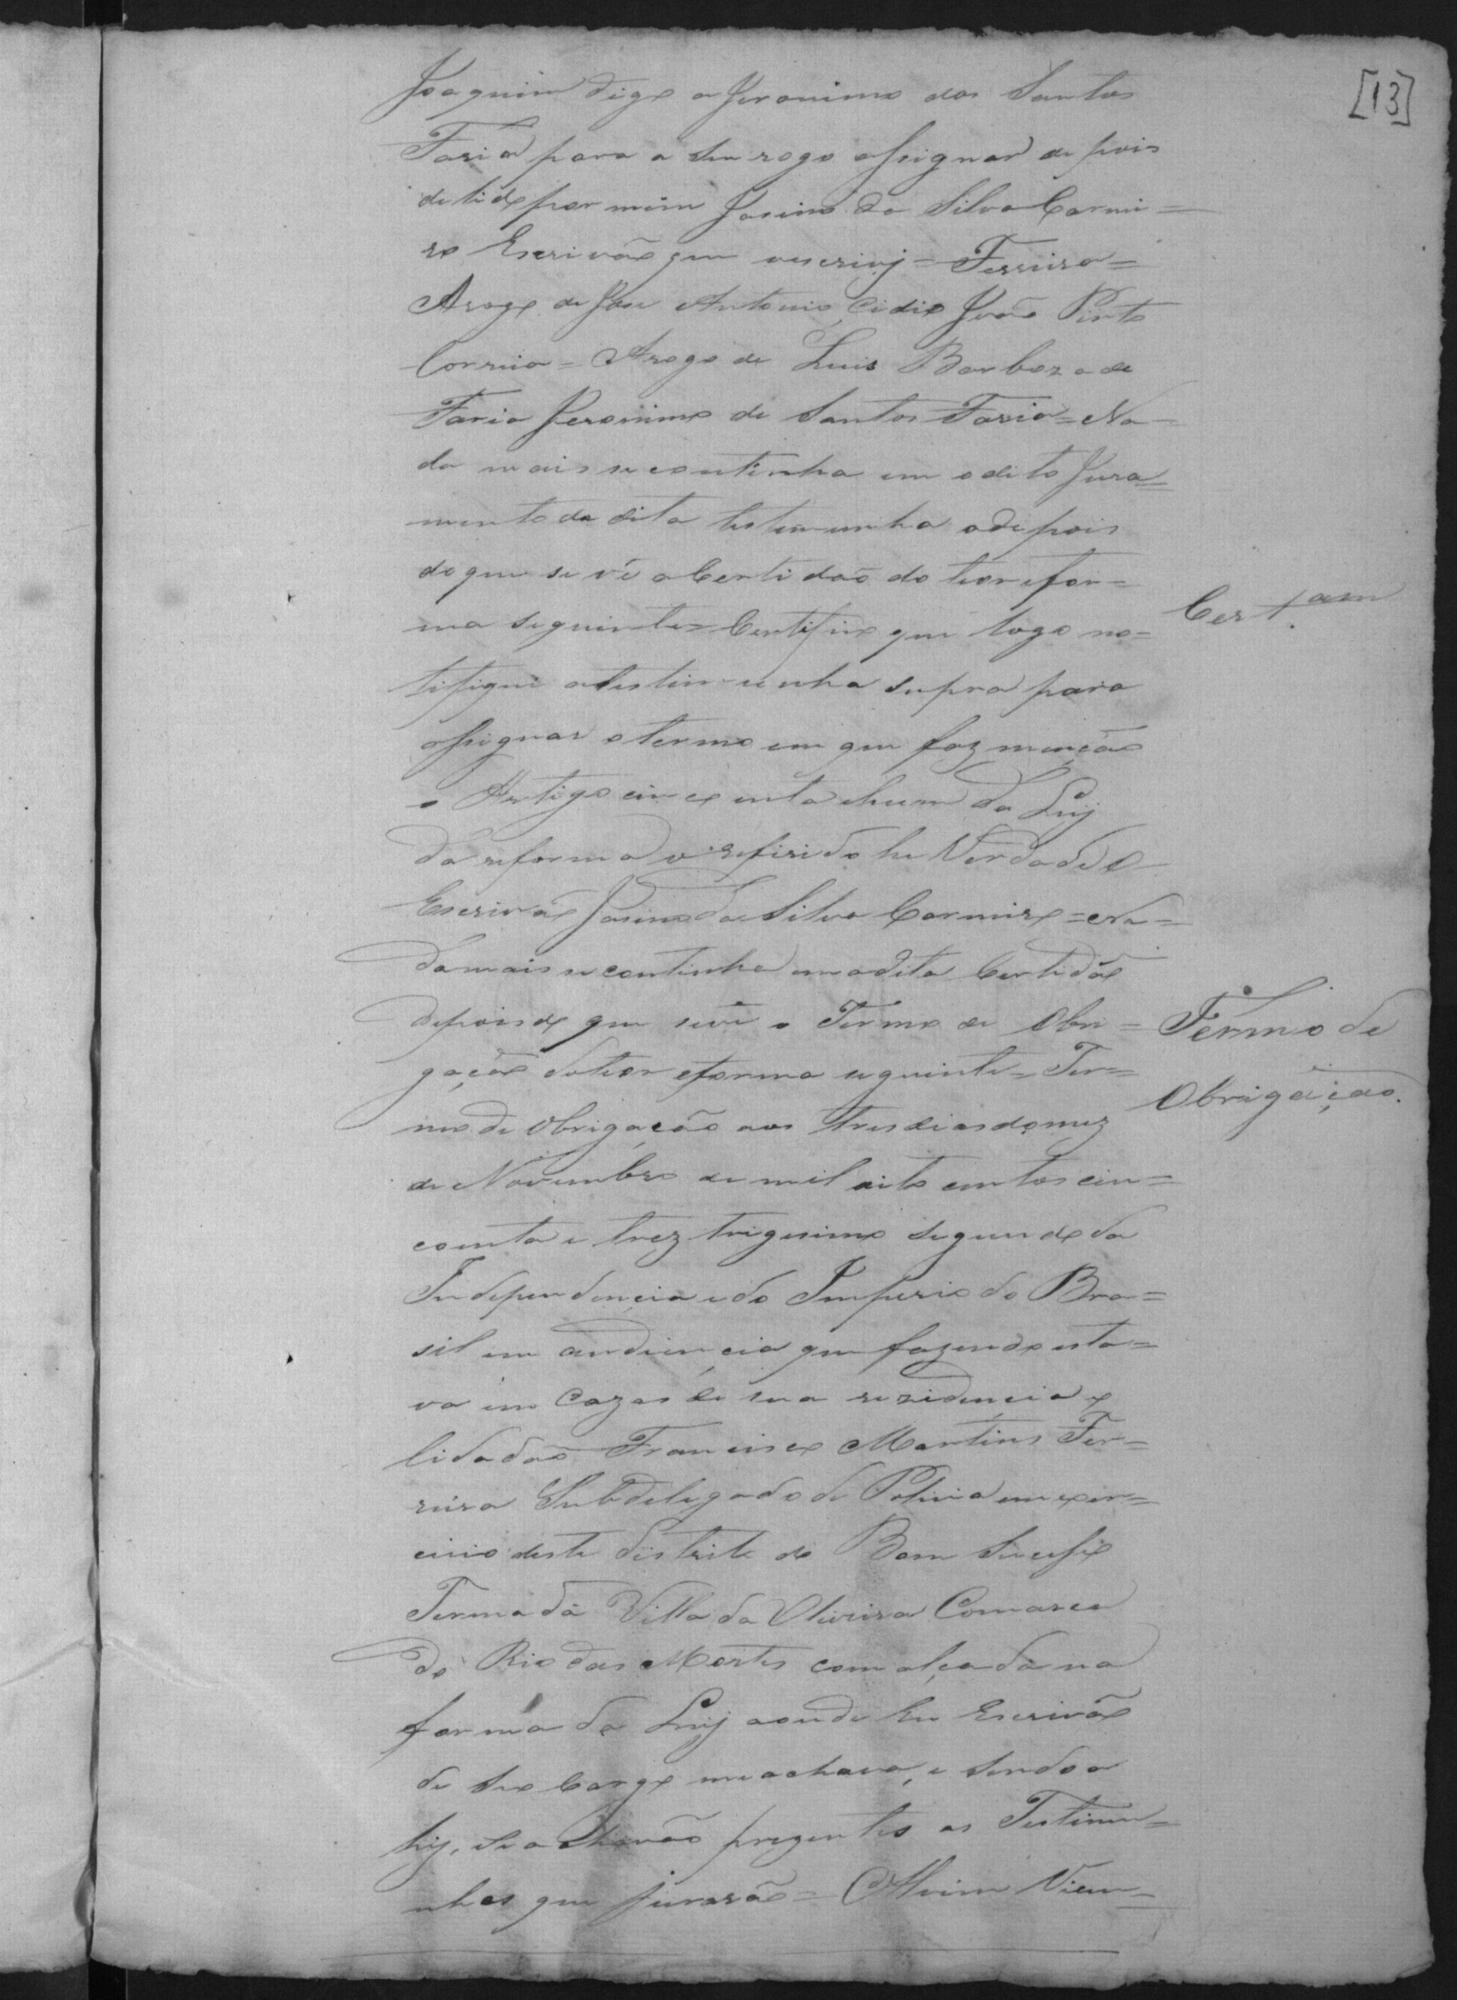 [13]
Joaquim digo a Jeronimo dos Santos
Faria para a seu rogo assignar de pois
de lido por mim Josino da Silva Carmi=
ro Escrivão que escrivj = Ferreira =
Arogo de Jose Antonio, Cidio João Pinto
Correia = Arogo de Luis Barboza de
Faria Jeronimo de Santos Faria = Na=
da mais se continha em o dito Jura=
mento da dita testemunha e depois
do que se vê a Certidão do teor e for=
ma seguinte = Certifico que logo no=
Cert.am
tifiquei a testemunha supra para
assignar o termo em que faz menção
o Artigo cincoenta e hum da Leij
da reforma o referido he Verdade O
Escrivão Josino da Silva Carmiro = Na=
da mais se continha em a dita Certidão
depois do que se vê o Termo de Obri=
Termo de
gação do teor e forma seguinte = Ter=
Obrigação.
mo de Obrigação aos tres dias do mez
de Novembro de mil oito centos cin=
coenta e trez trigesimo segundo da
Independencia e do Imperio do Bra=
sil em audiencia que fazendo esta=
va em Cazas de sua rezidencia o
Cidadão Francisco Martins Fer=
reira Subdelegado de Policia em exer=
cicio deste Distrito do Bom Sucesso
Termo da Villa da Oliveira Comarca
do Rio das Mortes com alçada na
forma da Leij aonde Eu Escrivão
de seo Cargo me achava, e sendo a
hij, se achavão prezentes as Testemu=
nhas que jurarão = Alvim Vieu=